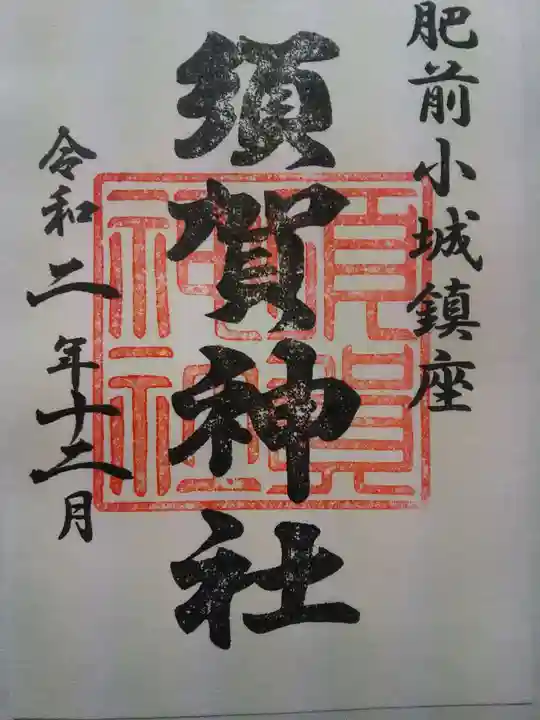 肥前小城鎮座
須賀神社
令和二年十二月